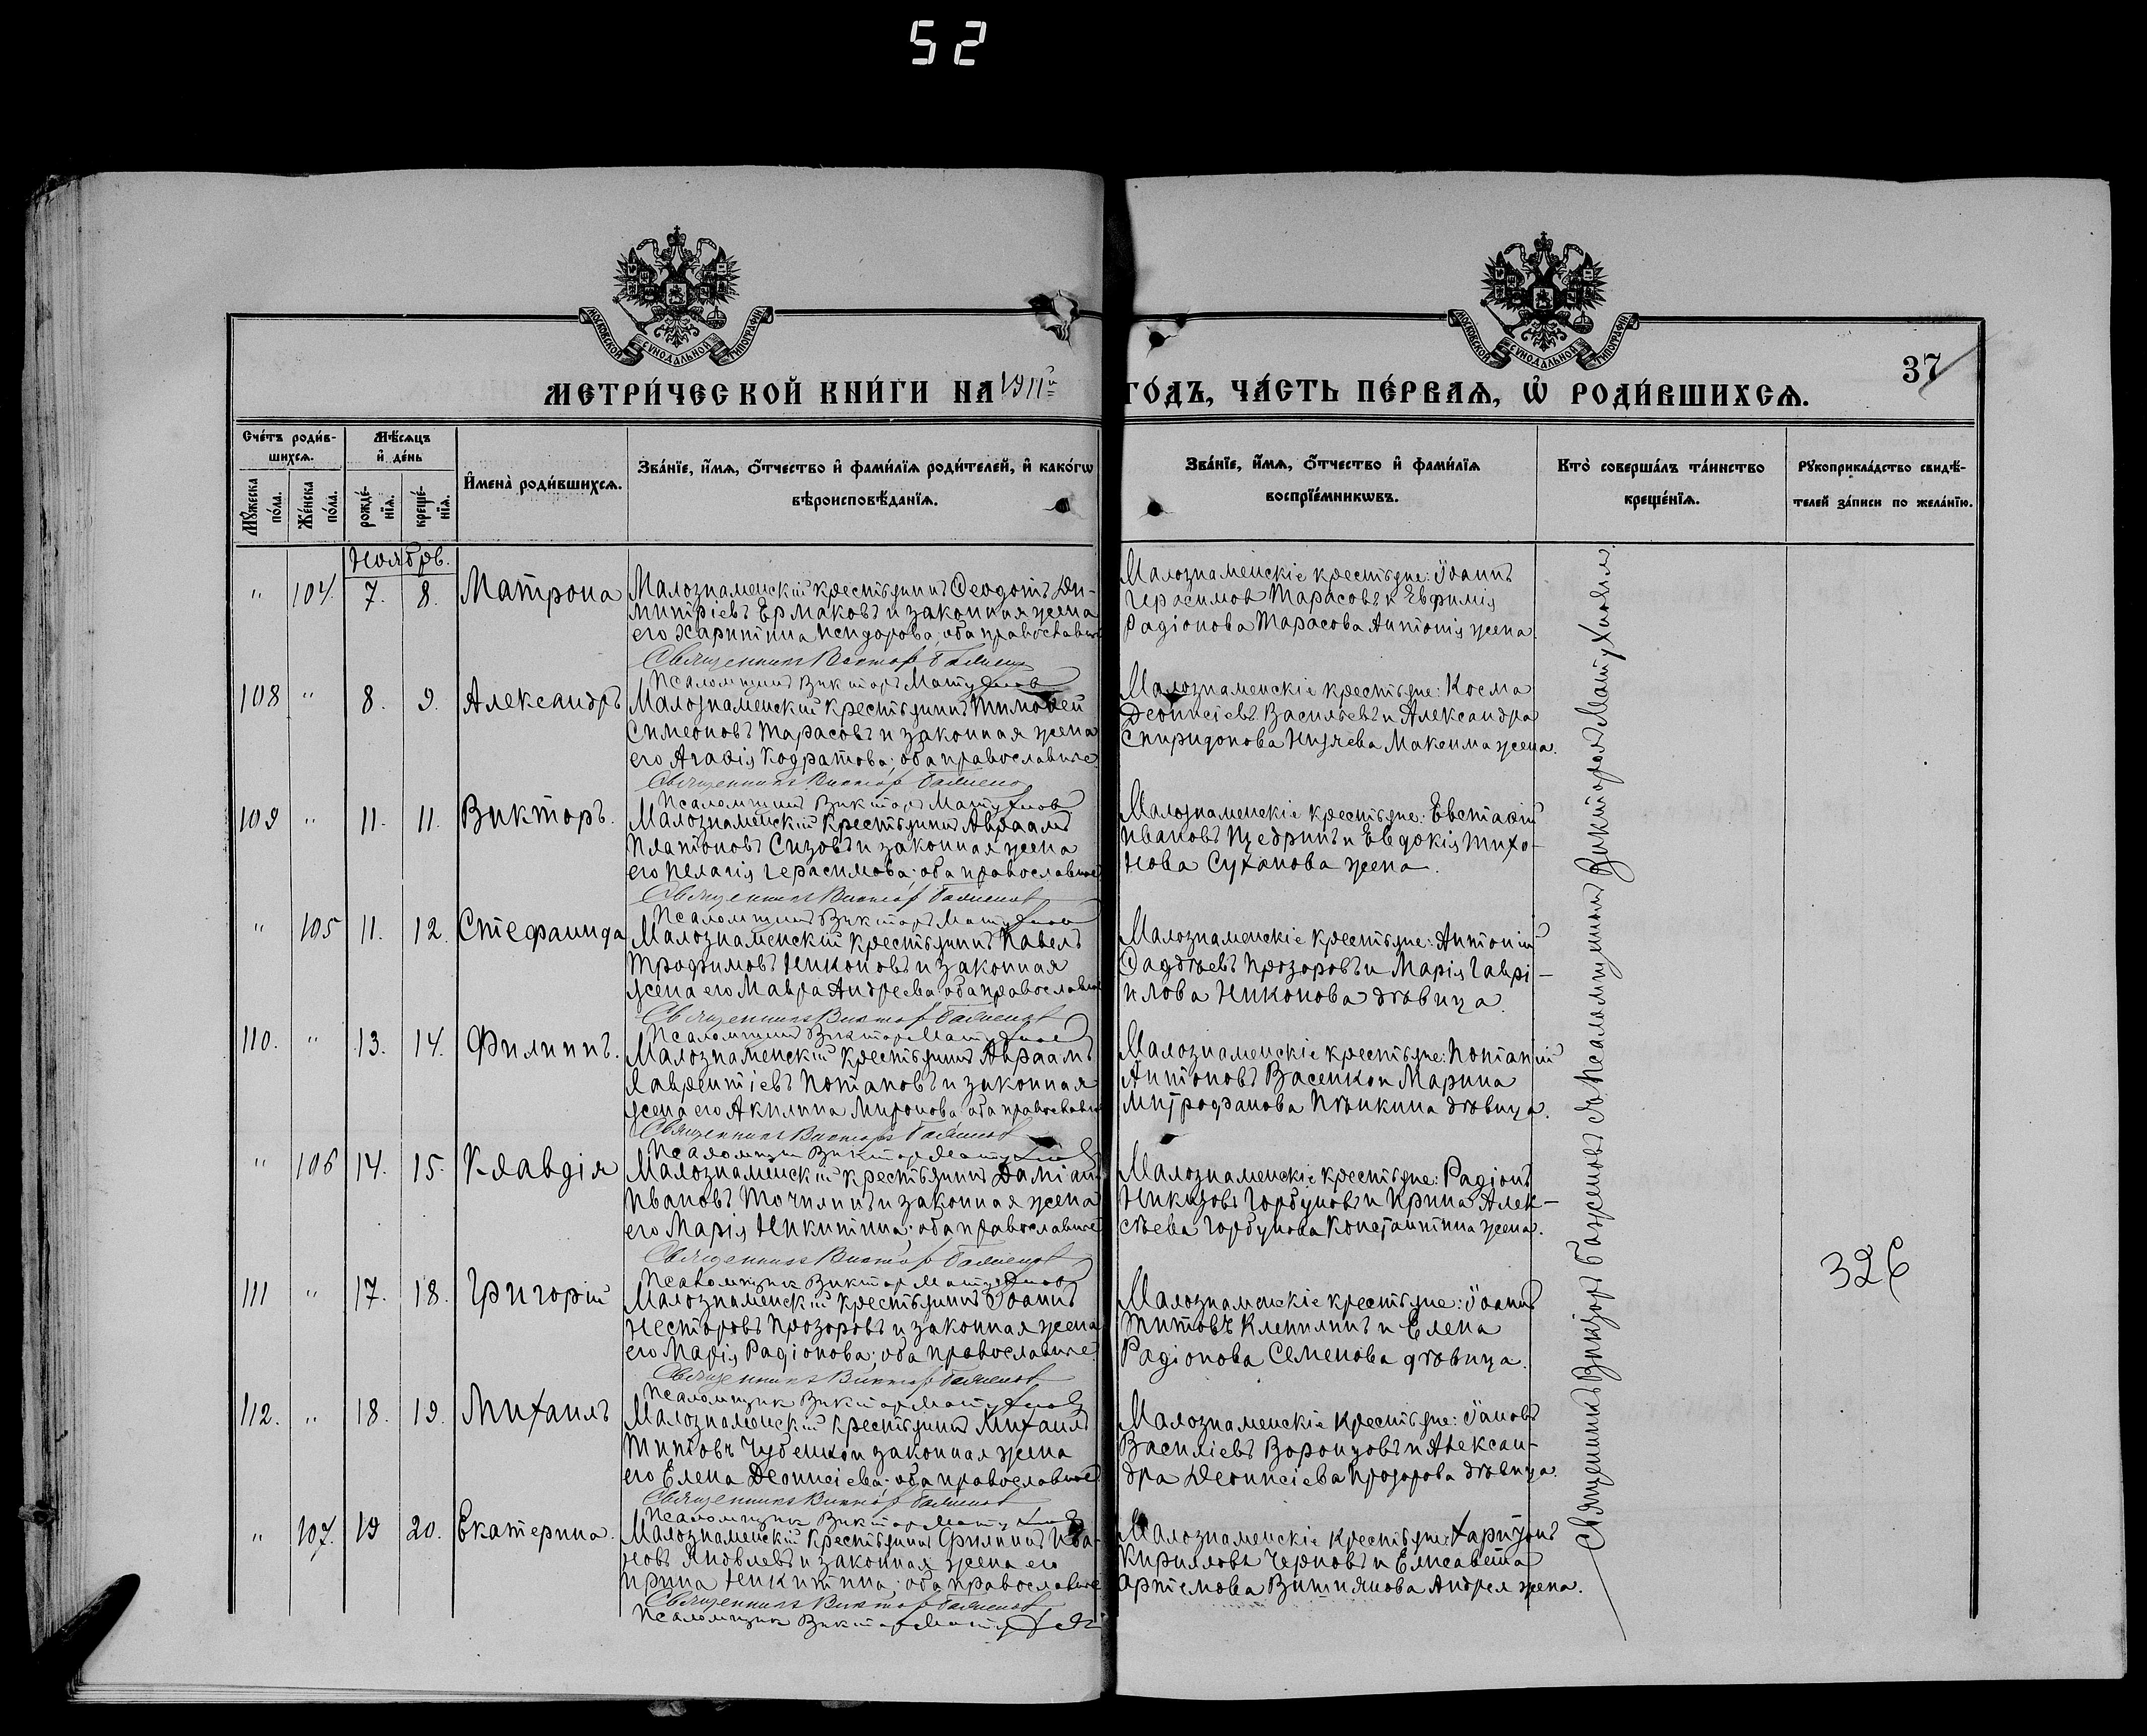 52
МОСКОВСКОЙ СѴНОДАЛЬНОЙ ТИПОГРАФІИ
МОСКОВСКОЙ СѴНОДАЛЬНОЙ ТИПОГРАФІИ
37
МЕТРИ́ЧЕСКОЙ КНИ́ГИ НА 1911й ГО́ДЪ, ЧА́СТЬ ПЕ́РВАЯ, Ѽ РОДИ́ВШИХСЯ.
Сче́тъ роди́в-
шихся.
Мѣ́сяцъ
и҆ де́нь
Мꙋ́жеска по́ла.
Же́нска по́ла.
рожде́-
нїя.
креще́-
нїя.
И҆мена̀ роди́вшихся.
Зва́нїе, и҆́мя, ѻ҆́тчество и҆ фами́лїя роди́телей, и҆ како́гѡ
вѣроисповѣ́данїя.
Зва́нїе, и҆́мя, ѻ҆́тчество и҆ фами́лїя
воспрїе́мникѡвъ.
Кто̀ соверша́лъ та́инство
креще́нїя.
Рꙋкоприкла́дство свидѣ́-
телей за́писи по жела́нїю.
Ноябрь.
" 104 7. 8. Матрона
Малознаменскій крестьянинъ Ѳеодотъ Ди-
митріевъ Ермаковъ и законная жена
его Харитина Исидорова; оба православные
Священникъ Викторъ Баженовъ
Псаломщикъ Викторъ Матухновъ
Малознаменскіе крестьяне: Іоаннъ
Герасимовъ Тарасовъ и Евфимія
Радіонова Тарасова Антонія жена.
108 " 8. 9. Александръ
Малознаменскій крестьянинъ Тимоѳей
Симеоновъ Тарасовъ и законная жена
его Агаѳія Кодратова; оба православные
Священникъ Викторъ Баженовъ
Псаломщикъ Викторъ Матухновъ
Малознаменскіе крестьяне: Косма
Деонисіевъ Васильевъ и Александра
Спиридонова Максима жена.
109 " 11. 11. Викторъ.
Малознаменскій крестьянинъ Авраамъ
Платоновъ Сизовъ и законная жена
его Пелагія Герасимова; оба православные
Священникъ Викторъ Баженовъ
Псаломщикъ Викторъ Матухновъ
Малознаменскіе крестьяне: Евстаѳій
Ивановъ Щедринъ и Евдокія Тихо-
нова Суханова жена.
" 105 11. 12. Стефанида
Малознаменскій крестьянинъ Павелъ
Трофимовъ Никоновъ и законная
жена его Мавра Андреева; оба православные
Священникъ Викторъ Баженовъ
Псаломщикъ Викторъ Матухновъ
Малознаменскіе крестьяне: Антоній
Ѳаддѣевъ Прозоровъ и Марія Гаврі-
илова Никонова дѣвица.
110. " 13. 14. Филиппъ.
Малознаменскій крестьянинъ Авраамъ
Лаврентіевъ Потаповъ и законная
жена его Акилина Миронова; оба православные
Священникъ Викторъ Баженовъ
Псаломщикъ Викторъ Матухновъ
Малознаменскіе крестьяне: Потапій
Антоновъ Васенкои Марина
Митрофанова Пѣнкина дѣвица.
" 106 14. 15. Клавдія
Малознаменскій крестьянинъ Даміанъ
Ивановъ Точилинъ и законная жена
его Марія Никитина; оба православные
Священникъ Викторъ Баженовъ
Псаломщикъ Викторъ Матухновъ
Малознаменскіе крестьяне: Радіонъ
Горбуновъ и Ирина Алек-
сѣева Горбунова Константина жена.
111 " 17. 18. Григорій
Малознаменскій крестьянинъ Іоаннъ
Несторовъ Прозоровъ и законная жена
его Марія Радіонова; оба православные
Священникъ Викторъ Баженовъ
Псаломщикъ Викторъ Матухновъ
Малознаменскіе крестьяне: Іоаннъ
Титовъ Клепилинъ и Елена
Радіонова Семенова дѣвица.
112. " 18. 19. Михаилъ
Малознаменскій крестьянинъ Михаилъ
Титовъ Чубенкои законная жена
его Елена Деонисіева; оба православные
Священникъ Викторъ Баженовъ
Псаломщикъ Викторъ Матухновъ
Малознаменскіе крестьяне: Іаковъ
Василіевъ Воронцовъ и Алексан-
дра Деонисіева Прозорова дѣвица.
" 107. 19 20. Екатерина.
Малознаменскій крестьянинъ Филиппъ Ива-
новъ Яковлевъ и законная жена его
Ирина Никитина; оба православные
Священникъ Викторъ Баженовъ
Псаломщикъ Викторъ Матухновъ
Малознаменскіе крестьяне: Харитонъ
Кирилловъ Черновъ и Елисавета
Артемова Андрея жена.
Священникъ Викторъ Баженовъ съ Псаломщикомъ Викторомъ Матухновымъ
326